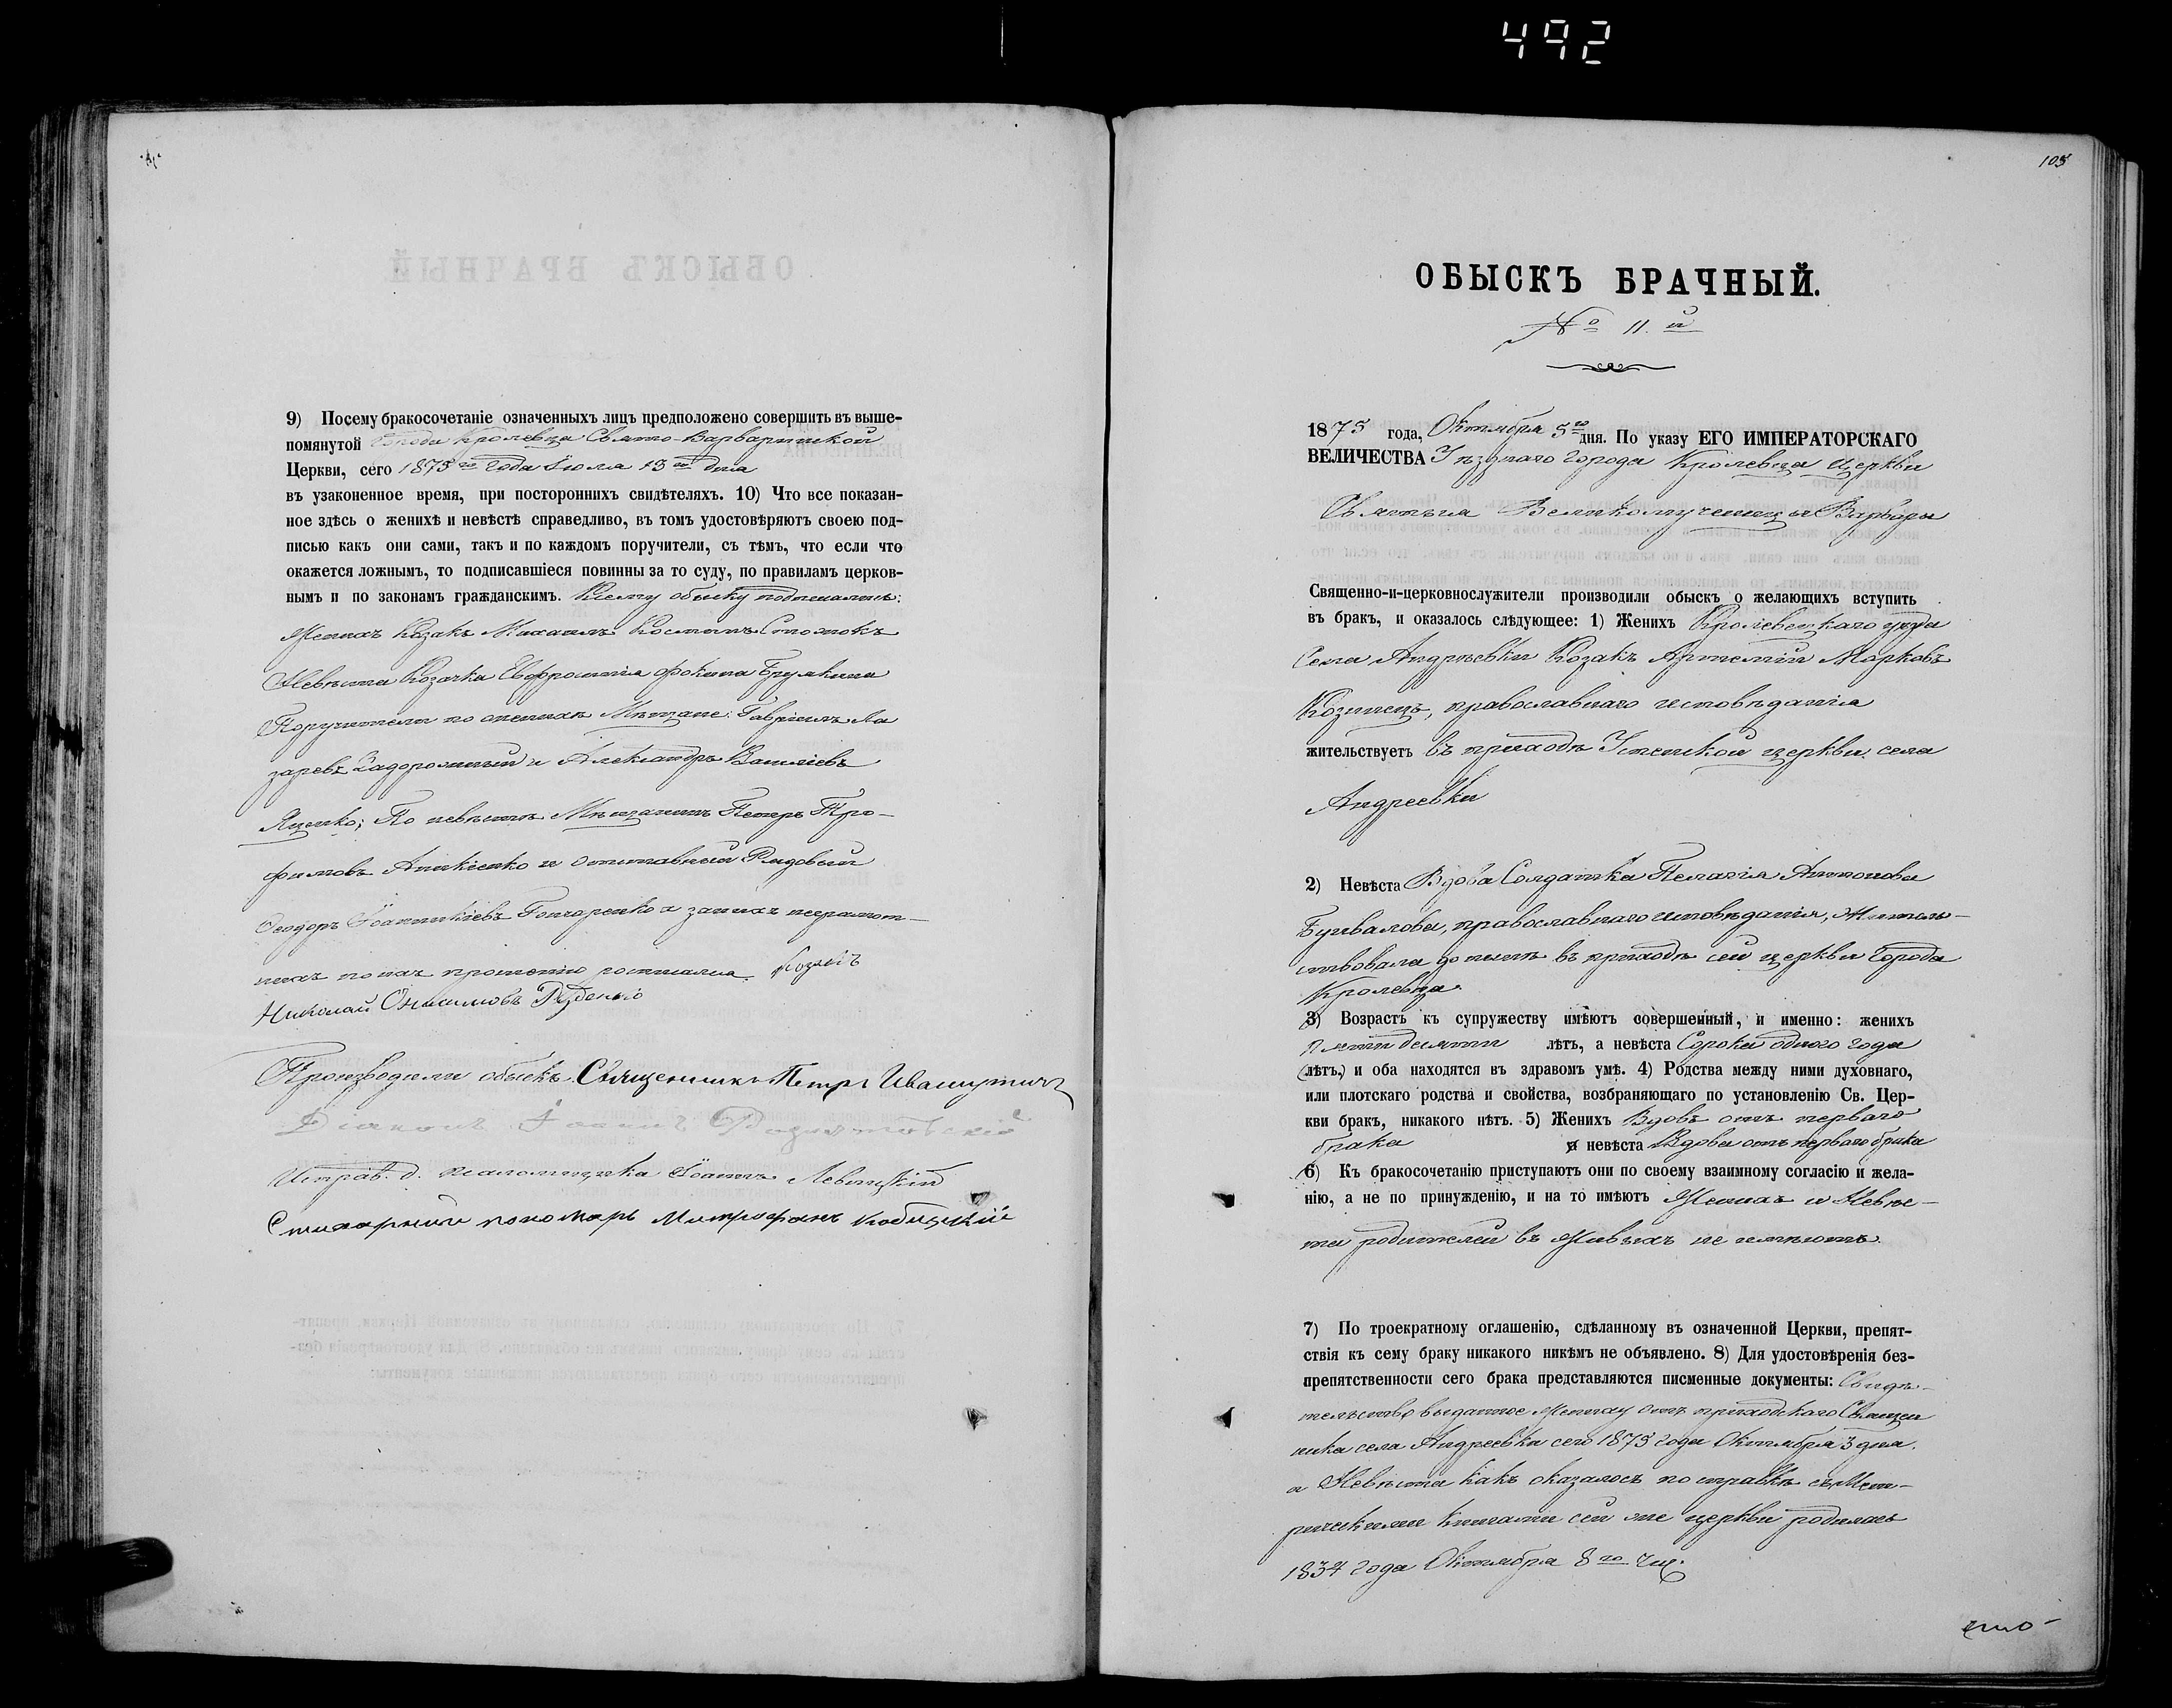 492
9) Посему бракосочетаніе означенныхъ лицъ предположено совершить въ выше-
помянутой Града Кролевца Свято-Варваринской
Церкви, сего 1875го года Іюля 13го дня
въ узаконенное время, при постороннихъ свидѣтеляхъ. 10) Что все показан-
ное здѣсь о женихѣ и невѣстѣ справедливо, въ томъ удостовѣряютъ своею под-
писью какъ они сами, такъ и по каждомъ поручители, съ тѣмъ, что если что
окажется ложнымъ, то подписавшіеся повинны за то суду, по правиламъ церков-
нымъ и по законамъ гражданскимъ. Къ сему обыску подписались:
Женихъ Козакъ Михаилъ Костинъ
Невѣста Козачка Евфросинія Фокина
Поручители по женихѣ Мѣщане: Гавріилъ Ла
заревъ Задорожный и Александръ Васильевъ
Яценко; По невѣстѣ Мѣщанинъ Петръ Тро-
фимовъ Аникіенко и отставный Рядовый
Феодоръ Іоанникіевъ Гончаренко а за нихъ неграмот-
ныхъ по ихъ прошенію росписался Козакъ
Николай Онисимовъ Руденко
Производили обыскъ: Священникъ Петръ Ивашутичъ
Діаконъ Іоаннъ
Исправ. д. псаломщика Іоаннъ Левицкій
Стихарный пономарь Митрофанъ
105
ОБЫСКЪ БРАЧНЫЙ.
№ 11.й
1875 года, Октября 5го дня. По указу ЕГО ИМПЕРАТОРСКАГО
ВЕЛИЧЕСТВА Уѣзднаго города Кролевца церкви
Святыя Великомученицы Варвары
Священно-и-церковнослужители производили обыскъ о желающихъ вступить
въ бракъ, и оказалось слѣдующее: 1) Женихъ Кролевецкаго уѣзда
Села Андреевки Козакъ Артемій Марковъ
Козинецъ, православнаго исповѣданія
жительствуетъ въ приходѣ Успенской церкви села
Андреевки
2) Невѣста Вдова Солдатка Пелагія Антонова
Бунвалова, православнаго исповѣданія, Житель-
ствовала до нынѣ въ приходѣ сей церкви города
Кролевца.
3) Возрастъ къ супружеству имѣютъ совершенный, и именно: женихъ
Пятидесяти лѣтъ, а невѣста Сорока одного года
(лѣтъ,) и оба находятся въ здравомъ умѣ. 4) Родства между ними духовнаго,
или плотскаго родства и свойства, возбраняющаго по установленію Св. Цер-
кви бракъ, никакого нѣтъ. 5) Женихъ Вдовъ отъ перваго
брака а невѣста Вдова отъ перваго брака
6) Къ бракосочетанію приступаютъ они по своему взаимному согласію и жела-
нію, а не по принужденію, и на то имѣютъ Женихъ и Невѣс-
та родителей въ живыхъ не имѣютъ.
7) По троекратному оглашенію, сдѣланному въ означенной Церкви, препят-
ствія къ сему браку никакого никѣмъ не объявлено. 8) Для удостовѣренія без-
препятственности сего брака представляются писменные документы: Свидѣ-
тельство выданное жениху отъ приходскаго Священ
ника села Андреевки сего 1875 года Октября 3 дня.
а Невѣста какъ оказалось по справкѣ съ Мет-
рическими книгами сей же церкви родилась
1834 года Октября 8го чис.